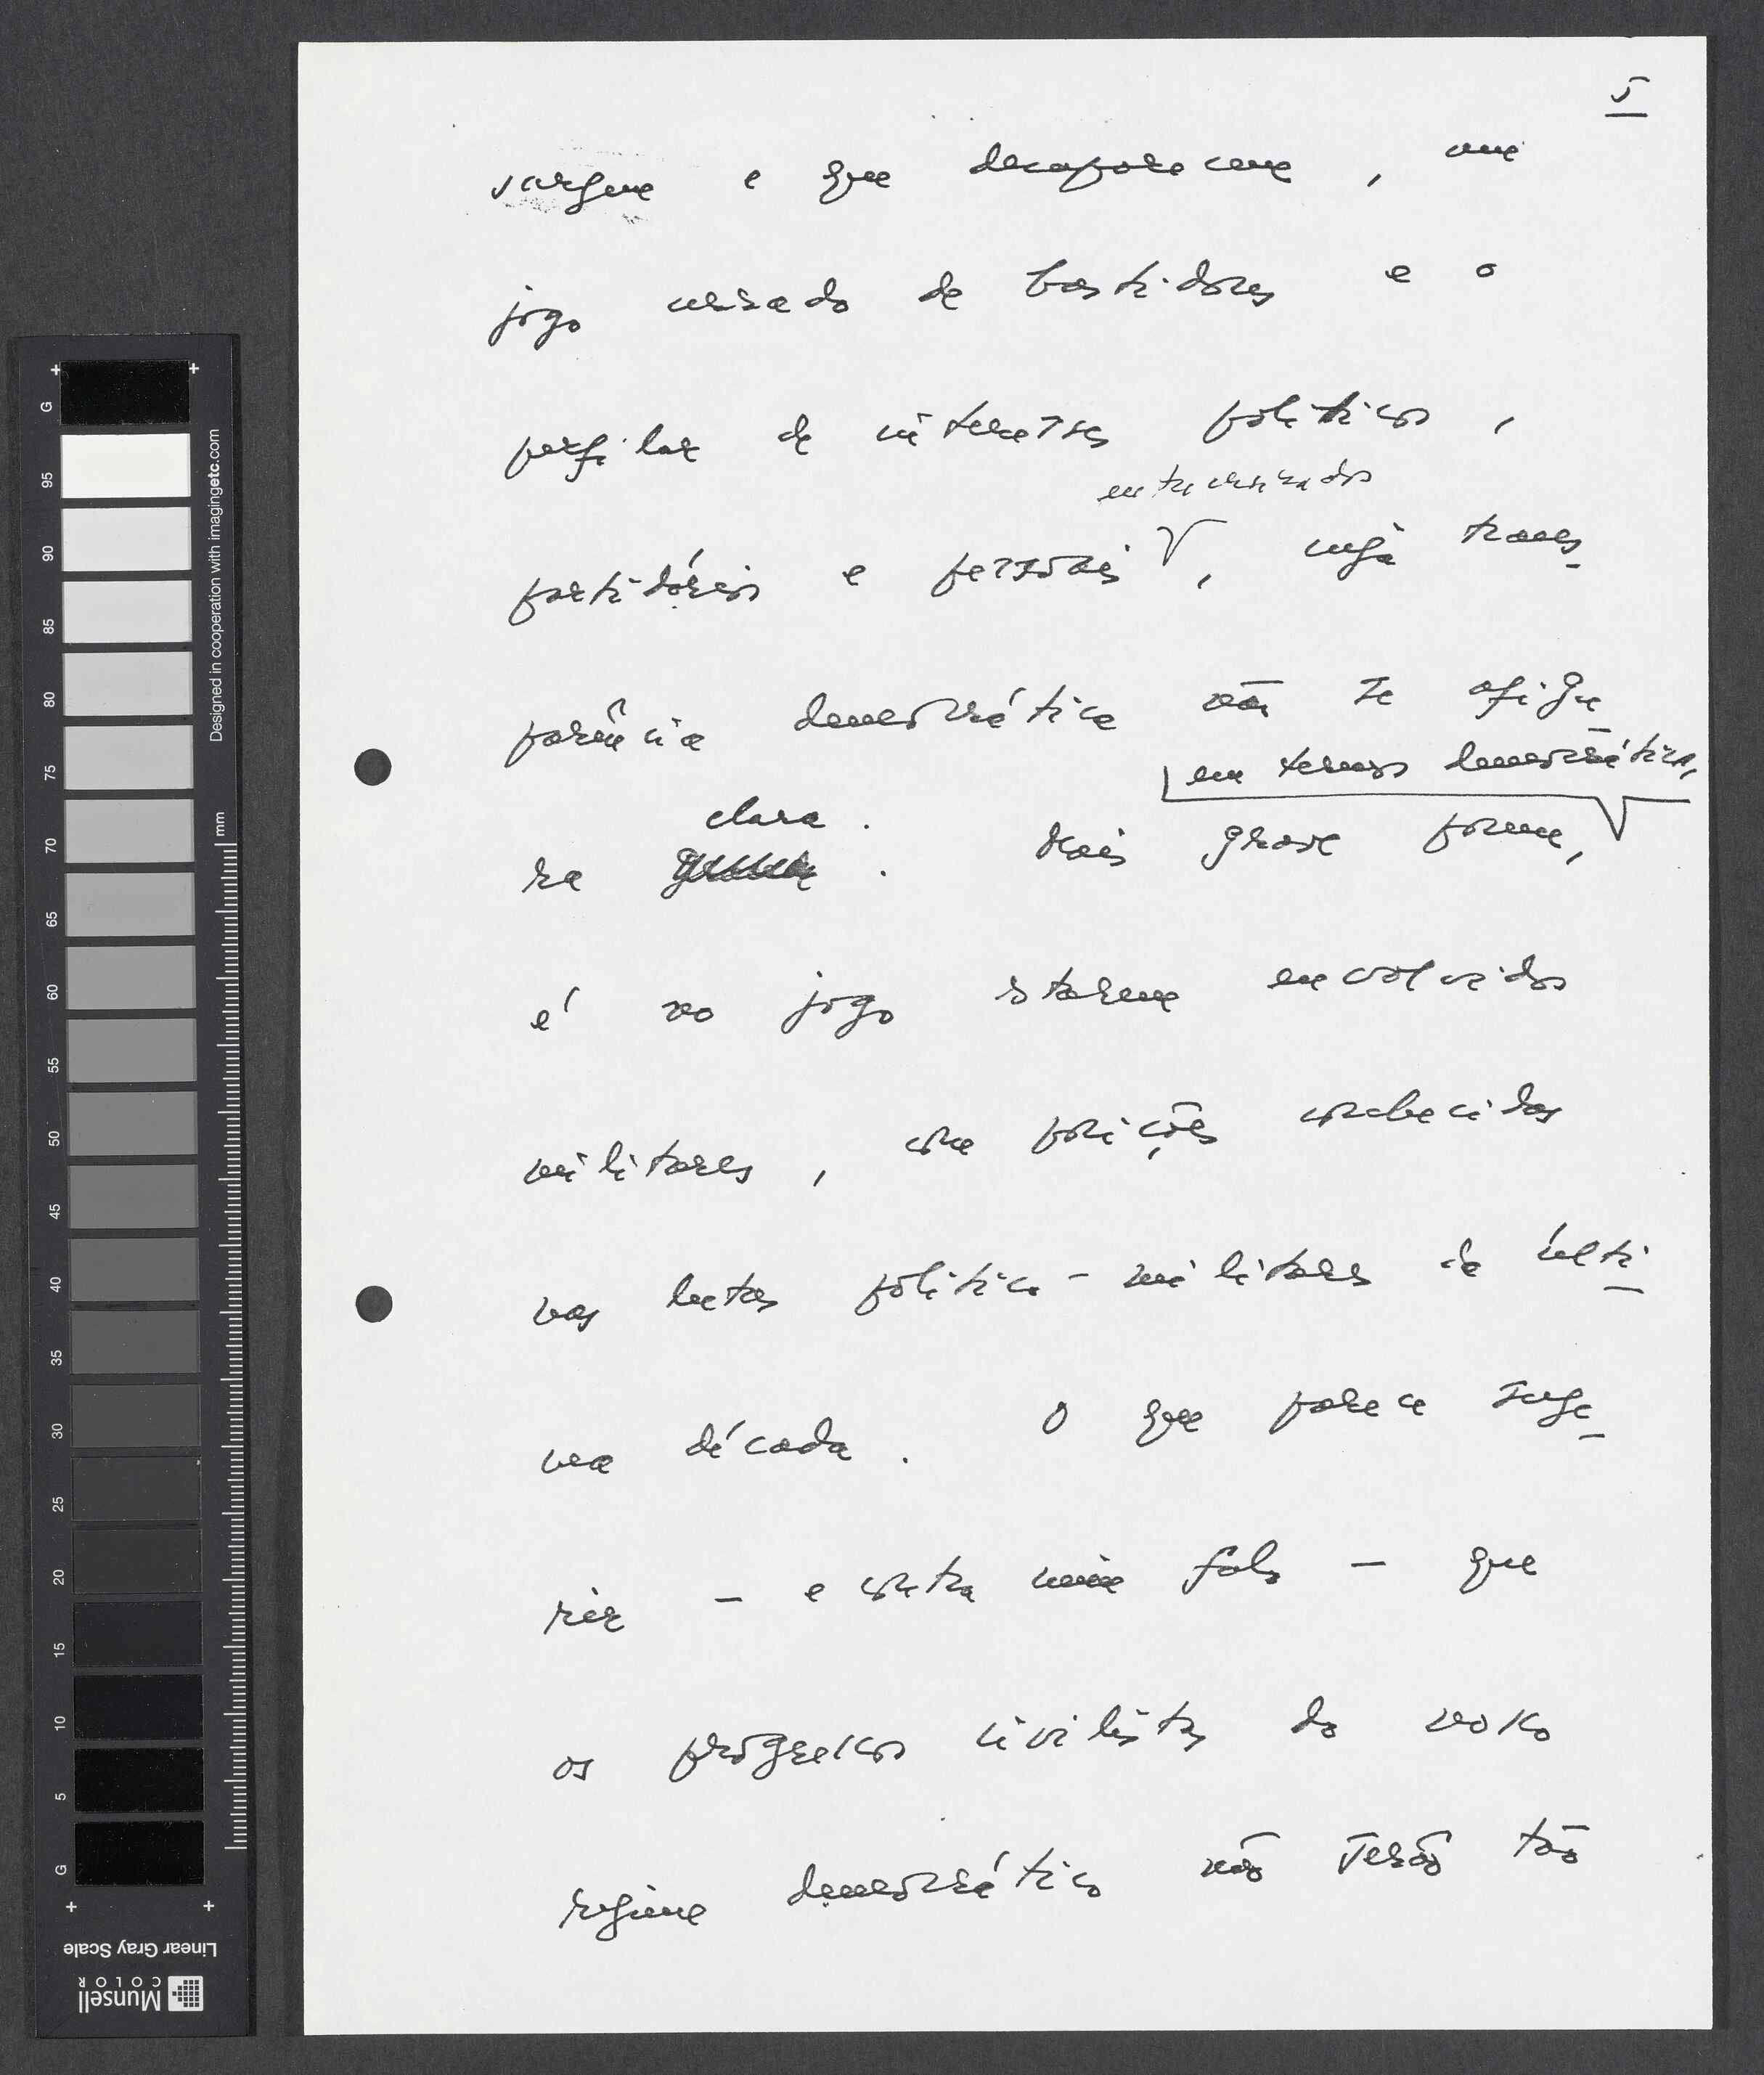 5
surgem e que desaparecem, um
jogo cerrado de bastidores e o
perfilar de interesses políticos,
entrecruzados
partidários e pessoais, cuja trans-
parência democrática não se afigu-
em termos democráticos,
clara.
ra. Mais grave porém,
é no jogo estarem envolvidos
militares, com posições conhecidas
nas lutas político-militares da últi-
ma década. O que parece suge-
rir - e contra mim falo - que
os progressos civilistas do nosso
regime democrático não serão tão
G
95
90
85
80
75
70
65
60
55
50
45
40
35
30
25
20
15
10
5
G
mm
Designed in cooperation with imagingetc.com
Linear Gray Scale
Munsell
COLOR